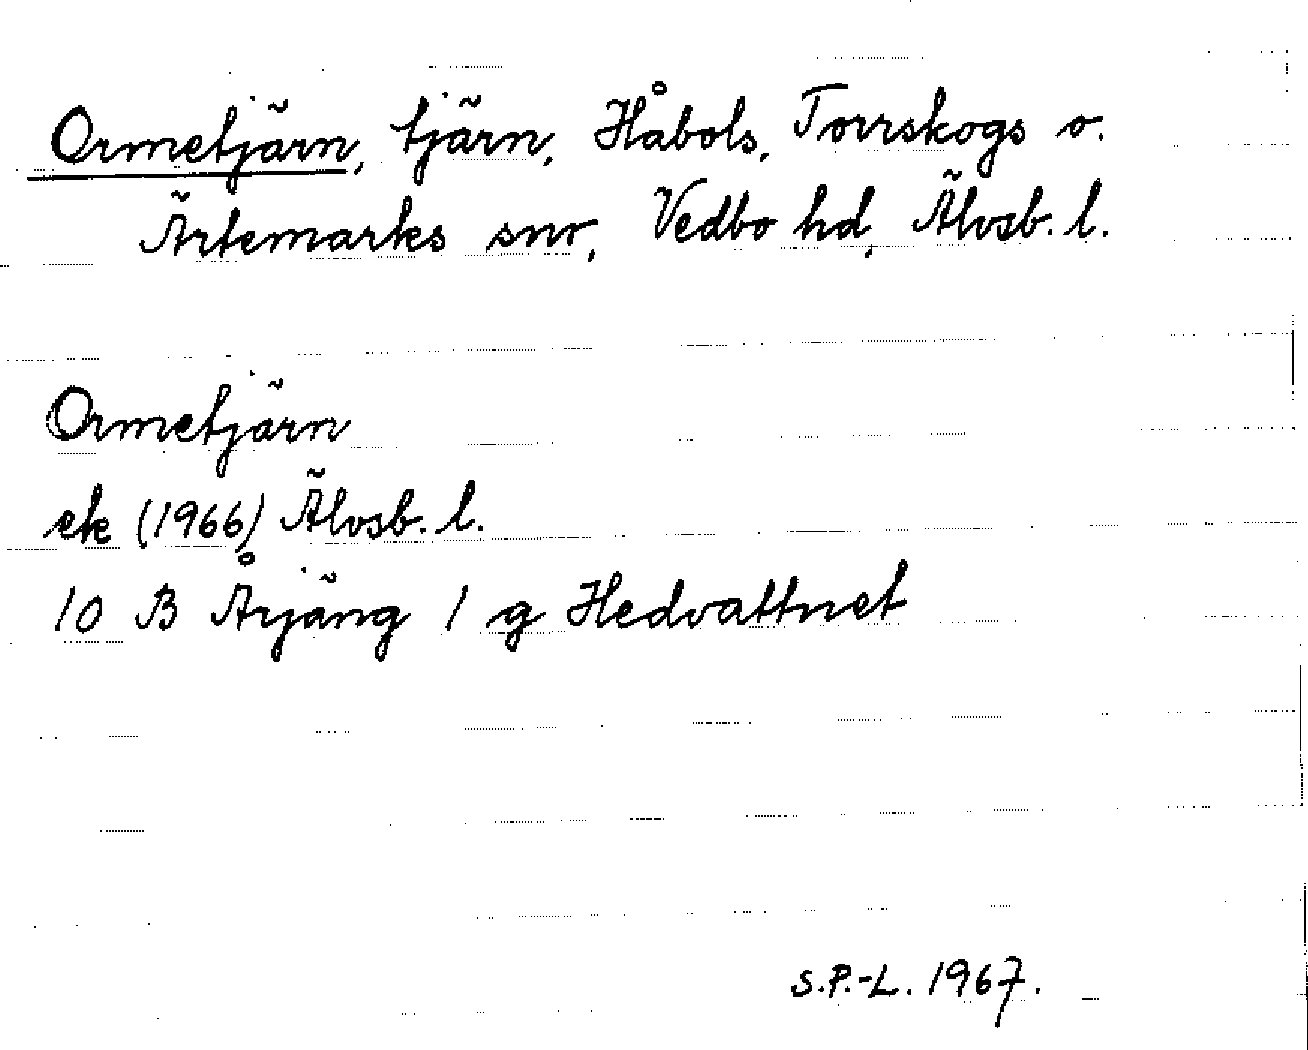 Ormetjärn, tjärn, Håbols, Torrskogs o.
Ärtemarks snr, Vedbo hd, Älvsb. l.
Ormetjärn
ek (1966) Älvsb. l.
10 B Årjäng 1 g Hedvattnet
S.P.-L. 1967.